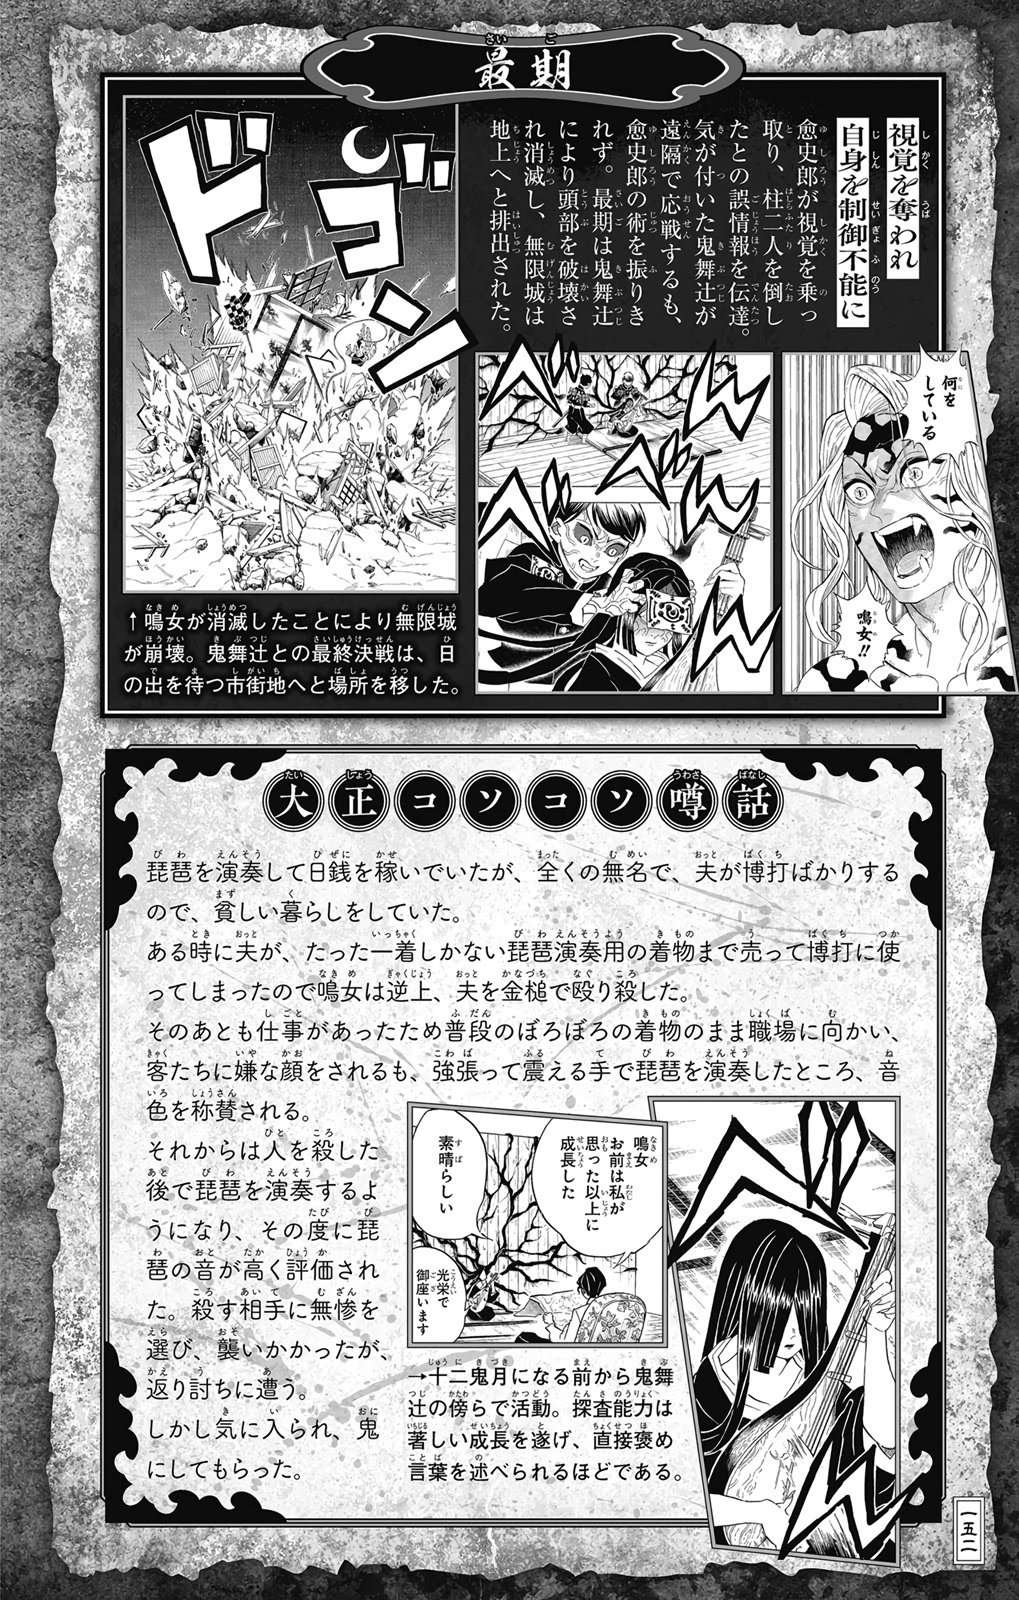 最期
視覚を奪われ
自身を制御不能に
愈史郎が視覚を乗っ
取り、柱二人を倒し
たとの誤情報を伝達。
気が付いた鬼舞辻が
遠隔で応戦するも、
愈史郎の術を振りき
れず。最期は鬼舞辻
により頭部を破壊さ
れ消滅し、無限城は
地上へと排出された。
何を
している
鳴女!!
べんべんべんべん
ドゴン
↑鳴女が消滅したことにより無限城
が崩壊。鬼舞辻との最終決戦は、日
の出を待つ市街地へと場所を移した。
大正コソコソ噂話
琵琶を演奏して日銭を稼いでいたが、全くの無名で、夫が博打ばかりする
ので、貧しい暮らしをしていた。
ある時に夫が、たった一着しかない琵琶演奏用の着物まで売って博打に使
ってしまったので鳴女は逆上、夫を金槌で殴り殺した。
そのあとも仕事があったため普段のぼろぼろの着物のまま職場に向かい、
客たちに嫌な顔をされるも、強張って震える手で琵琶を演奏したところ、音
色を称賛される。
それからは人を殺した
後で琵琶を演奏するよ
うになり、その度に琵
琶の音が高く評価され
た。殺す相手に無惨を
選び、襲いかかったが、
返り討ちに遭う。
しかし気に入られ、鬼
にしてもらった。
鳴女
お前は私が
思った以上に
成長した
素晴らしい
光栄で
御座います
→十二鬼月になる前から鬼舞
辻の傍らで活動。探査能力は
著しい成長を遂げ、直接褒め
言葉を述べられるほどである。
べん
べん
一五二